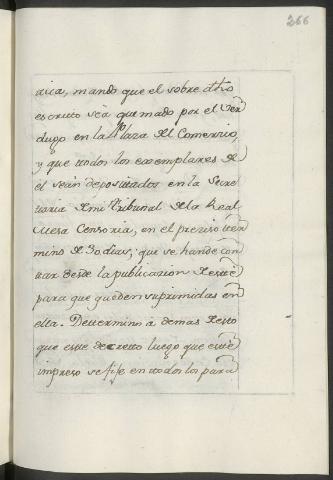 266
dica, mando que el sobre dho
escrito sea quemado por el Ver
dugo en la Plaza del Comercio,
y que todos los exemplares de
el sean depositados en la Secre
taria de mi tribunal de la Real
Mesa Censoria, en el preciso ter
mino de 30 dias, que se han de con
tar desde la publicazion de este
para que queden suprimidas en
ella. Determino a demas de esto
que este decretto luego que este
impreso se fije en todos los para